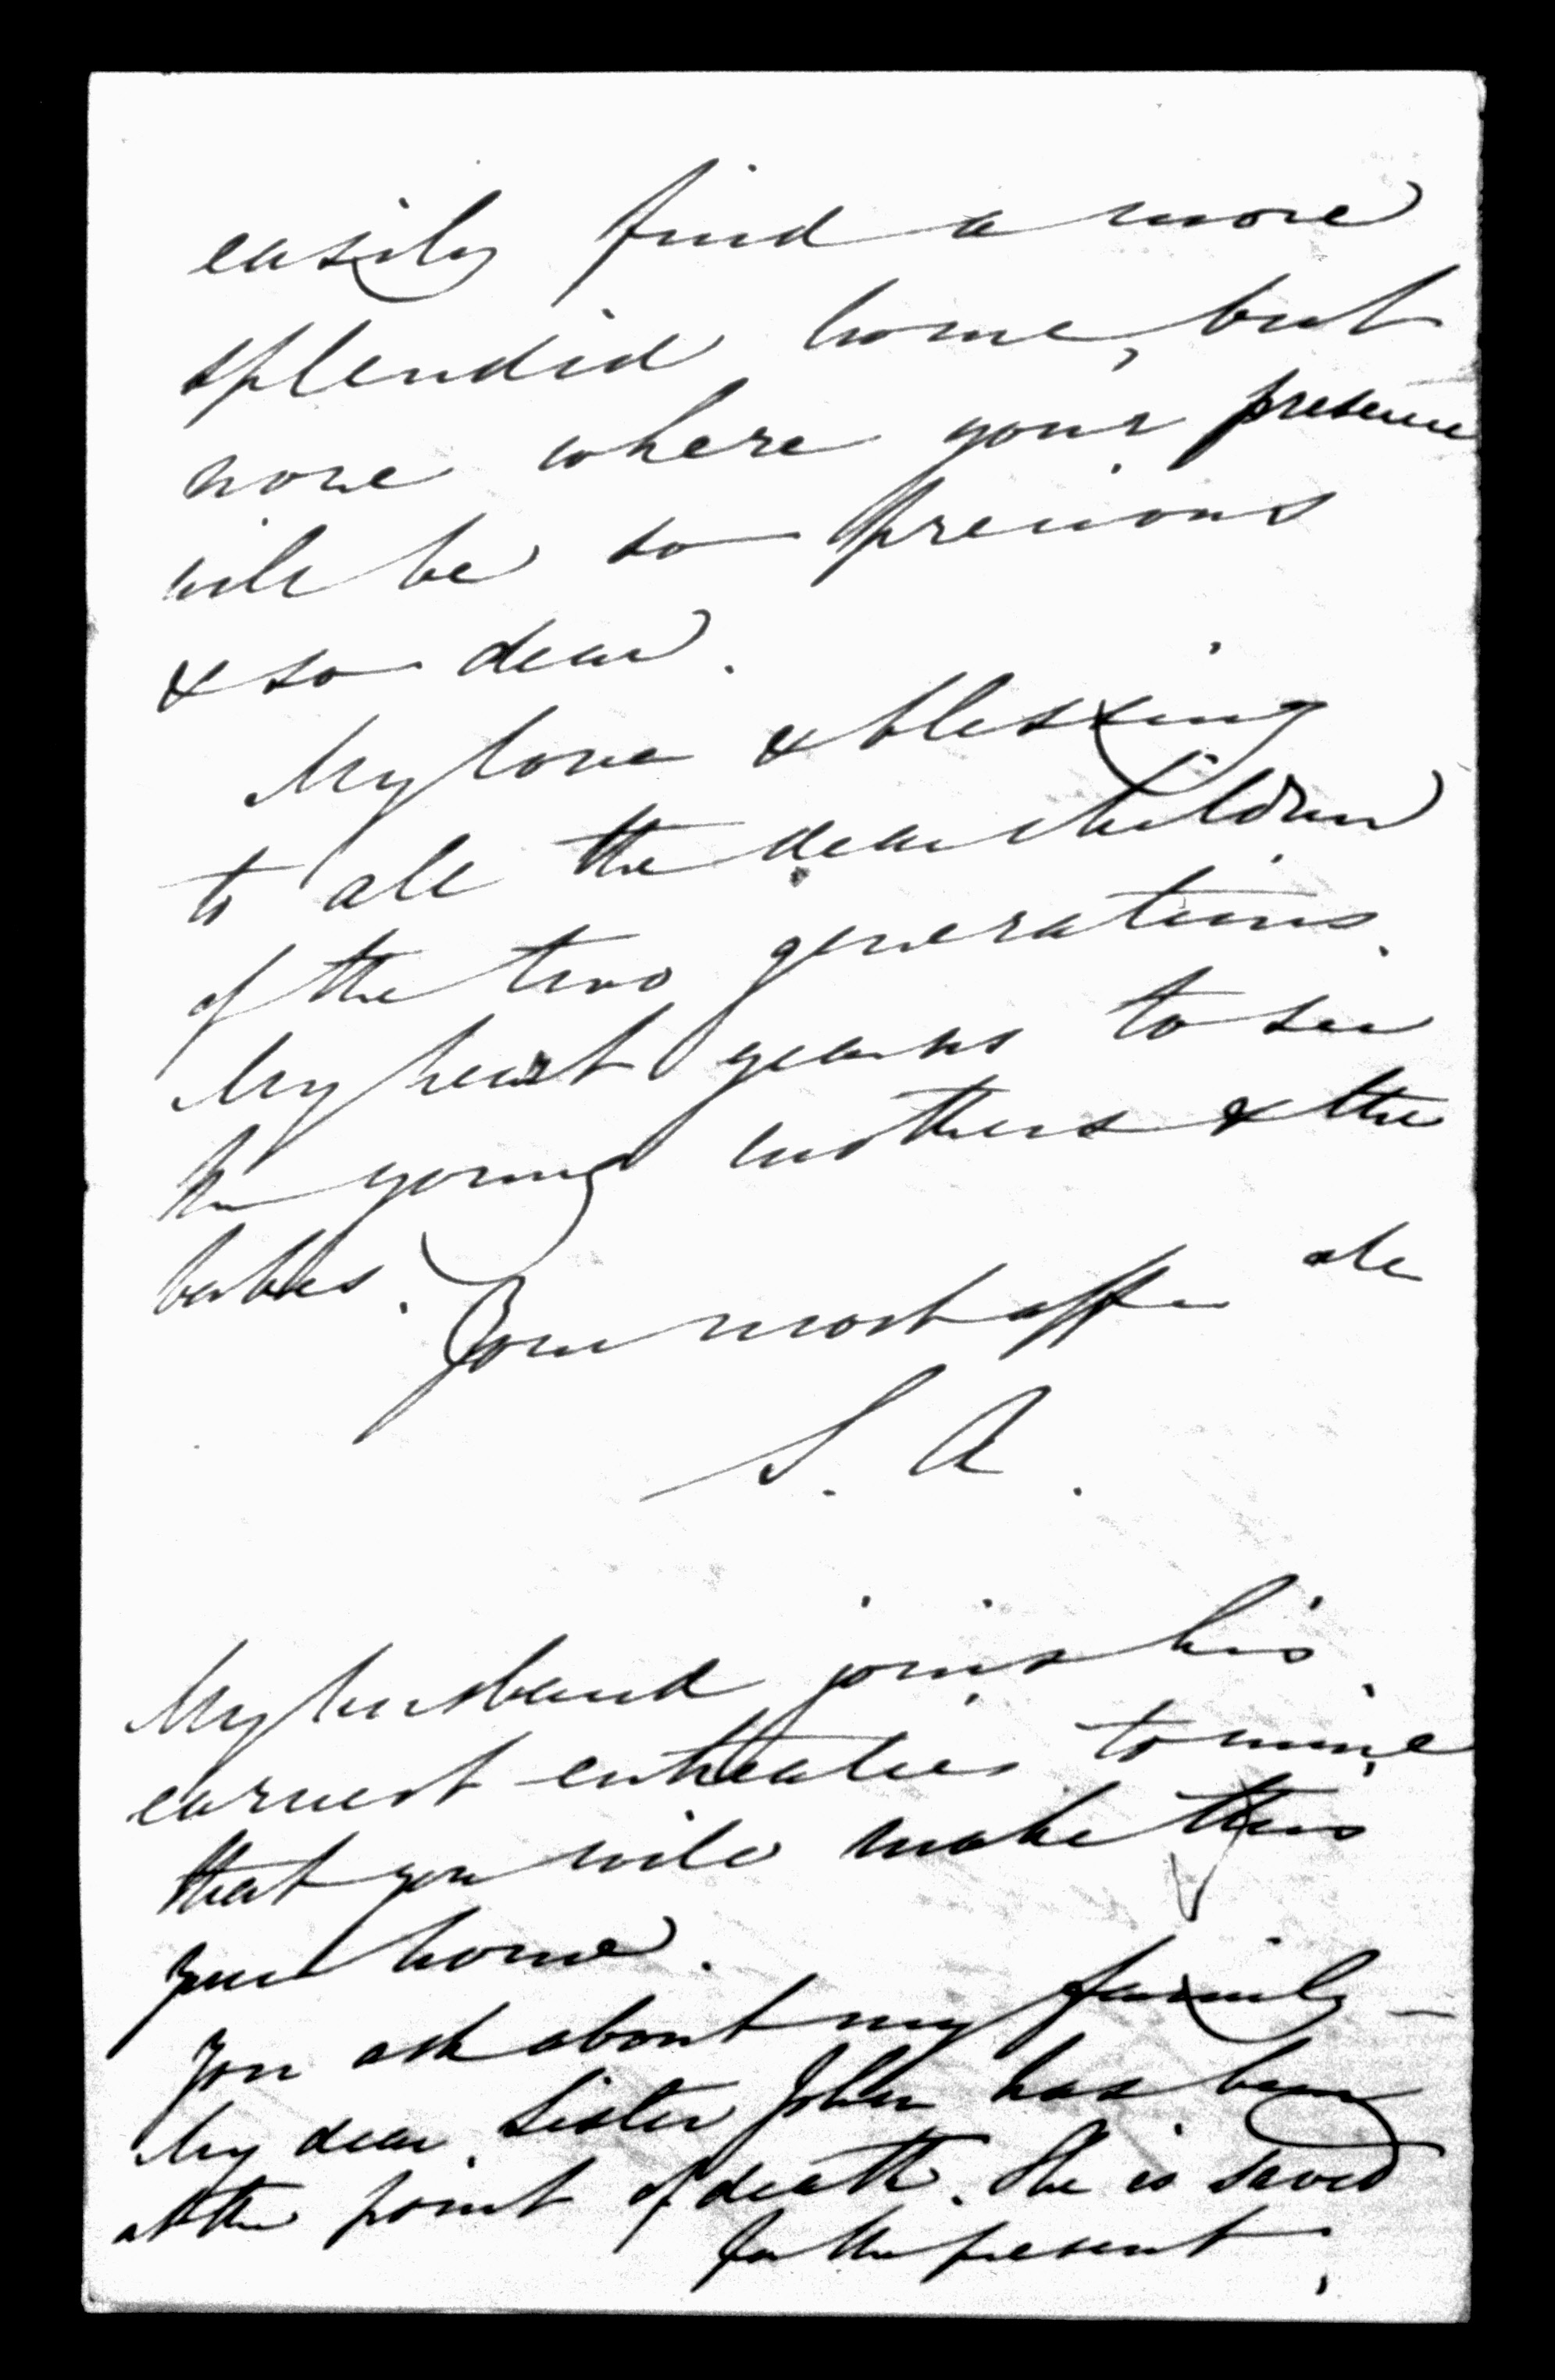 easily find a more
splendid home, but
none where your presence
will be so precious
& so dear.
My love & blessing
to all the dear children
of the two generations.
My heart yearns to see
the young mothers & the
babies.
Your most affn ate
S. A.
My husband joins his
earnest entreaties to mine,
that you will make this
your home.
You ask about my family –
My dear Sister John has been
at the point of death. She is saved
for the present,